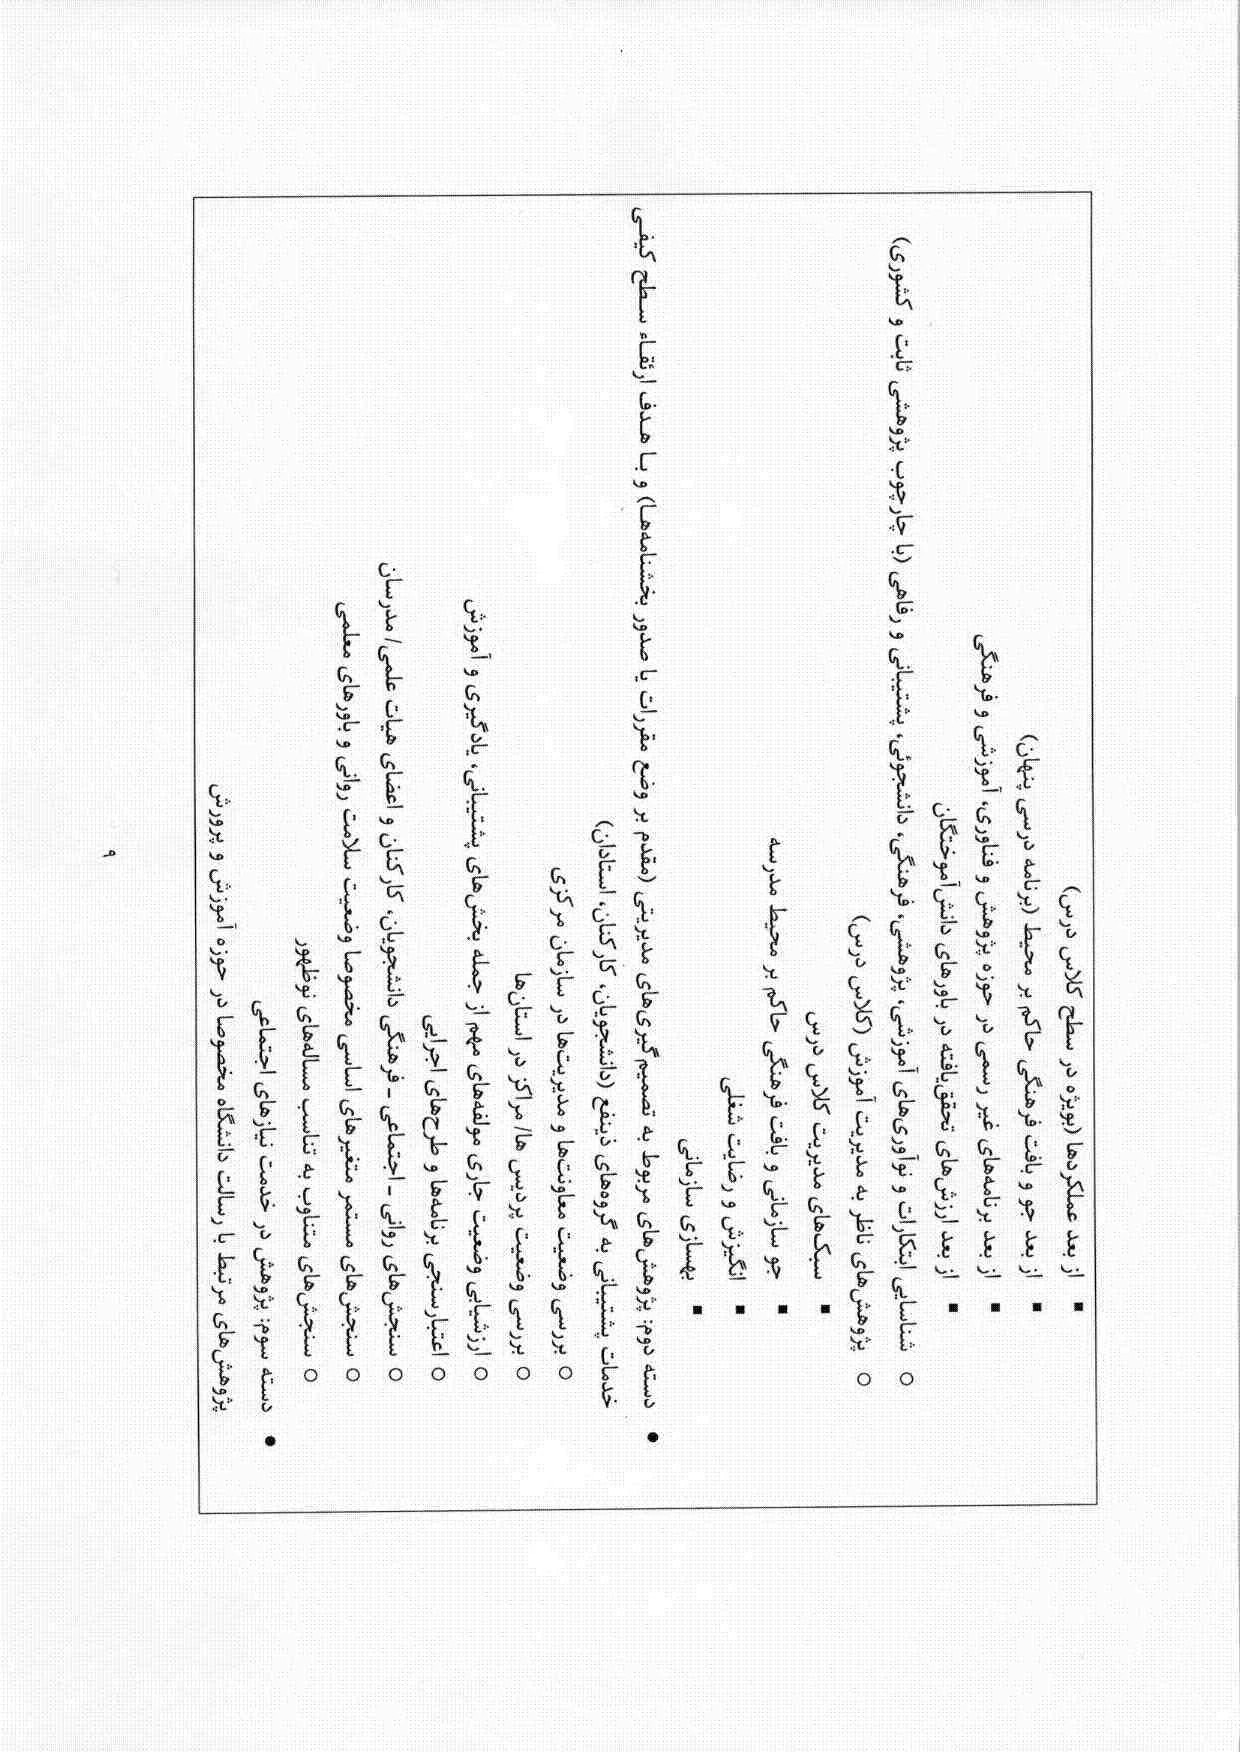 ▪ از بعد عملکردها (بویژه در سطح کلاس درس)
▪ از بعد جو و بافت فرهنگی حاکم بر محیط (برنامه درسی پنهان)
▪ از بعد برنامه‌های غیر رسمی در حوزه پژوهش و فناوری، آموزشی و فرهنگی
▪ از بعد ارزش‌های تحقق‌یافته در باورهای دانش‌آموختگان
○ شناسایی ابتکارات و نوآوری‌های آموزشی، پژوهشی، فرهنگی، دانشجوئی، پشتیبانی و رفاهی (با چارچوب پژوهشی ثابت و کشوری)
○ پژوهش‌های ناظر به مدیریت آموزش (کلاس درس)
▪ سبک‌های مدیریت کلاس درس
▪ جو سازمانی و بافت فرهنگی حاکم بر محیط مدرسه
▪ انگیزش و رضایت شغلی
▪ بهسازی سازمانی
● دسته دوم: پژوهش‌های مربوط به تصمیم‌گیری‌های مدیریتی (مقدم بر وضع مقررات یا صدور بخشنامه‌ها) و با هدف ارتقاء سطح کیفی
خدمات پشتیبانی به گروه‌های ذینفع (دانشجویان، کارکنان، استادان)
○ بررسی وضعیت معاونت‌ها و مدیریت‌ها در سازمان مرکزی
○ بررسی وضعیت پردیس ها/ مراکز در استان‌ها
○ ارزشیابی وضعیت جاری مولفه‌های مهم از جمله بخش‌های پشتیبانی، یادگیری و آموزش
○ اعتبارسنجی برنامه‌ها و طرح‌های اجرایی
○ سنجش‌های روانی ـ اجتماعی ـ فرهنگی دانشجویان، کارکنان و اعضای هیات علمی/ مدرسان
○ سنجش‌های مستمر متغیرهای اساسی مخصوصا وضعیت سلامت روانی و باورهای معلمی
○ سنجش‌های متناوب به تناسب مساله‌های نوظهور
● دسته سوم: پژوهش در خدمت نیازهای اجتماعی
پژوهش‌های مرتبط با رسالت دانشگاه مخصوصا در حوزه آموزش و پرورش
۹